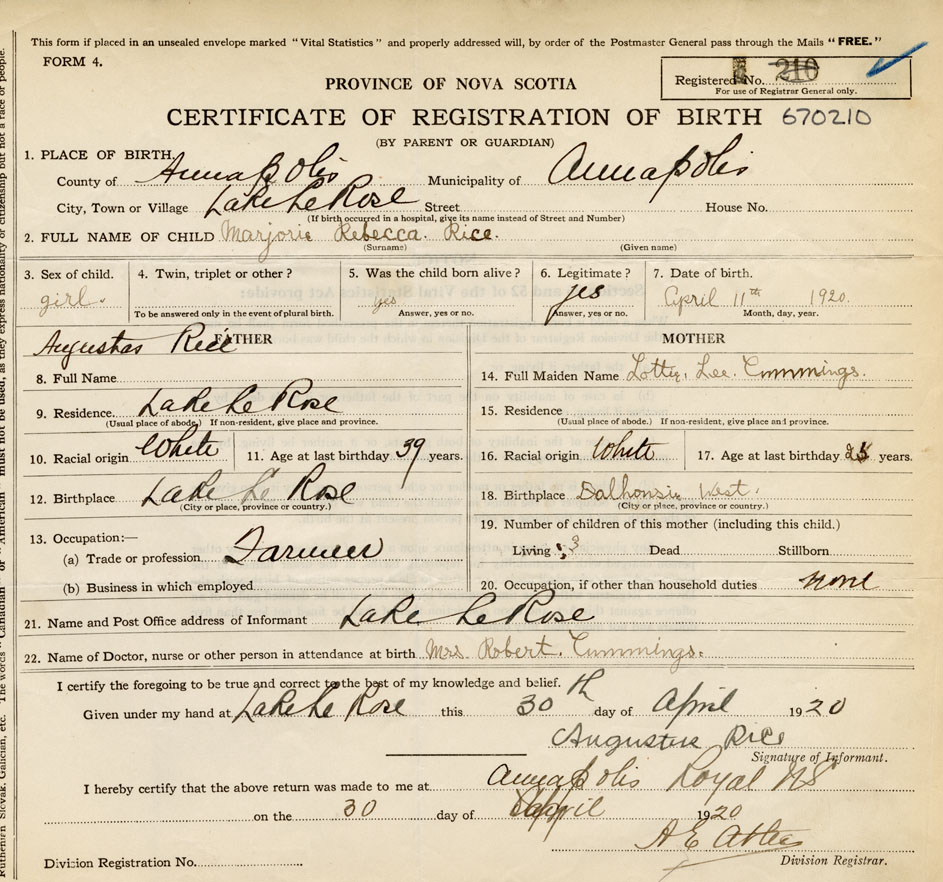 This form if placed in an unsealed envelope marked "Vital Statistics" and properly addressed will, by order of the Postmaster General pass through the Mails "FREE."
FORM 4.
Registered No. 210
For use of Registrar General only.
PROVINCE OF NOVA SCOTIA
CERTIFICATE OF REGISTRATION OF BIRTH 670210
(BY PARENT OR GUARDIAN)
1. PLACE OF BIRTH
County of Annapolis Municipality of Annapolis
City, Town or Village Lake Le Rose Street House No.
(If birth occurred in a hospital, give its name instead of Street and Number)
2. FULL NAME OF CHILD Marjorie Rebecca. Rice.
(Surname) (Given name)
3. Sex of child. 4. Twin, triplet or other? 5. Was the child born alive? 6. Legitimate? 7. Date of birth.
girl. yes yes April 11th 1920.
To be answered only in the event of plural birth. Answer, yes or no. Answer, yes or no. Month, day, year.
FATHER
Augustas Rice
8. Full Name
9. Residence. Lake Le Rose
(Usual place of abode.) If non-resident, give place and province.
10. Racial origin White 11. Age at last birthday 39 years.
12. Birthplace Lake Le Rose
(City or place, province or country.)
13. Occupation:—
(a) Trade or profession Farmer
(b) Business in which employed
MOTHER
14. Full Maiden Name Lee. Cummings.
15. Residence
(Usual place of abode.) If non-resident, give place and province.
16. Racial origin White 17. Age at last birthday years.
18. Birthplace Dalhousie West.
(City or place, province or country.)
19. Number of children of this mother (including this child.)
Living 3 Dead Stillborn
20. Occupation, if other than household duties none
21. Name and Post Office address of Informant Lake Le Rose
22. Name of Doctor, nurse or other person in attendance at birth Mrs Robert. Cummings.
I certify the foregoing to be true and correct to the best of my knowledge and belief.
Given under my hand at Lake Le Rose this 30th day of April 1920
Augustus Rice
Signature of Informant.
I hereby certify that the above return was made to me at Annapolis Royal NS
on the 30 day of April 1920
A E
Division Registration No. Division Registrar.